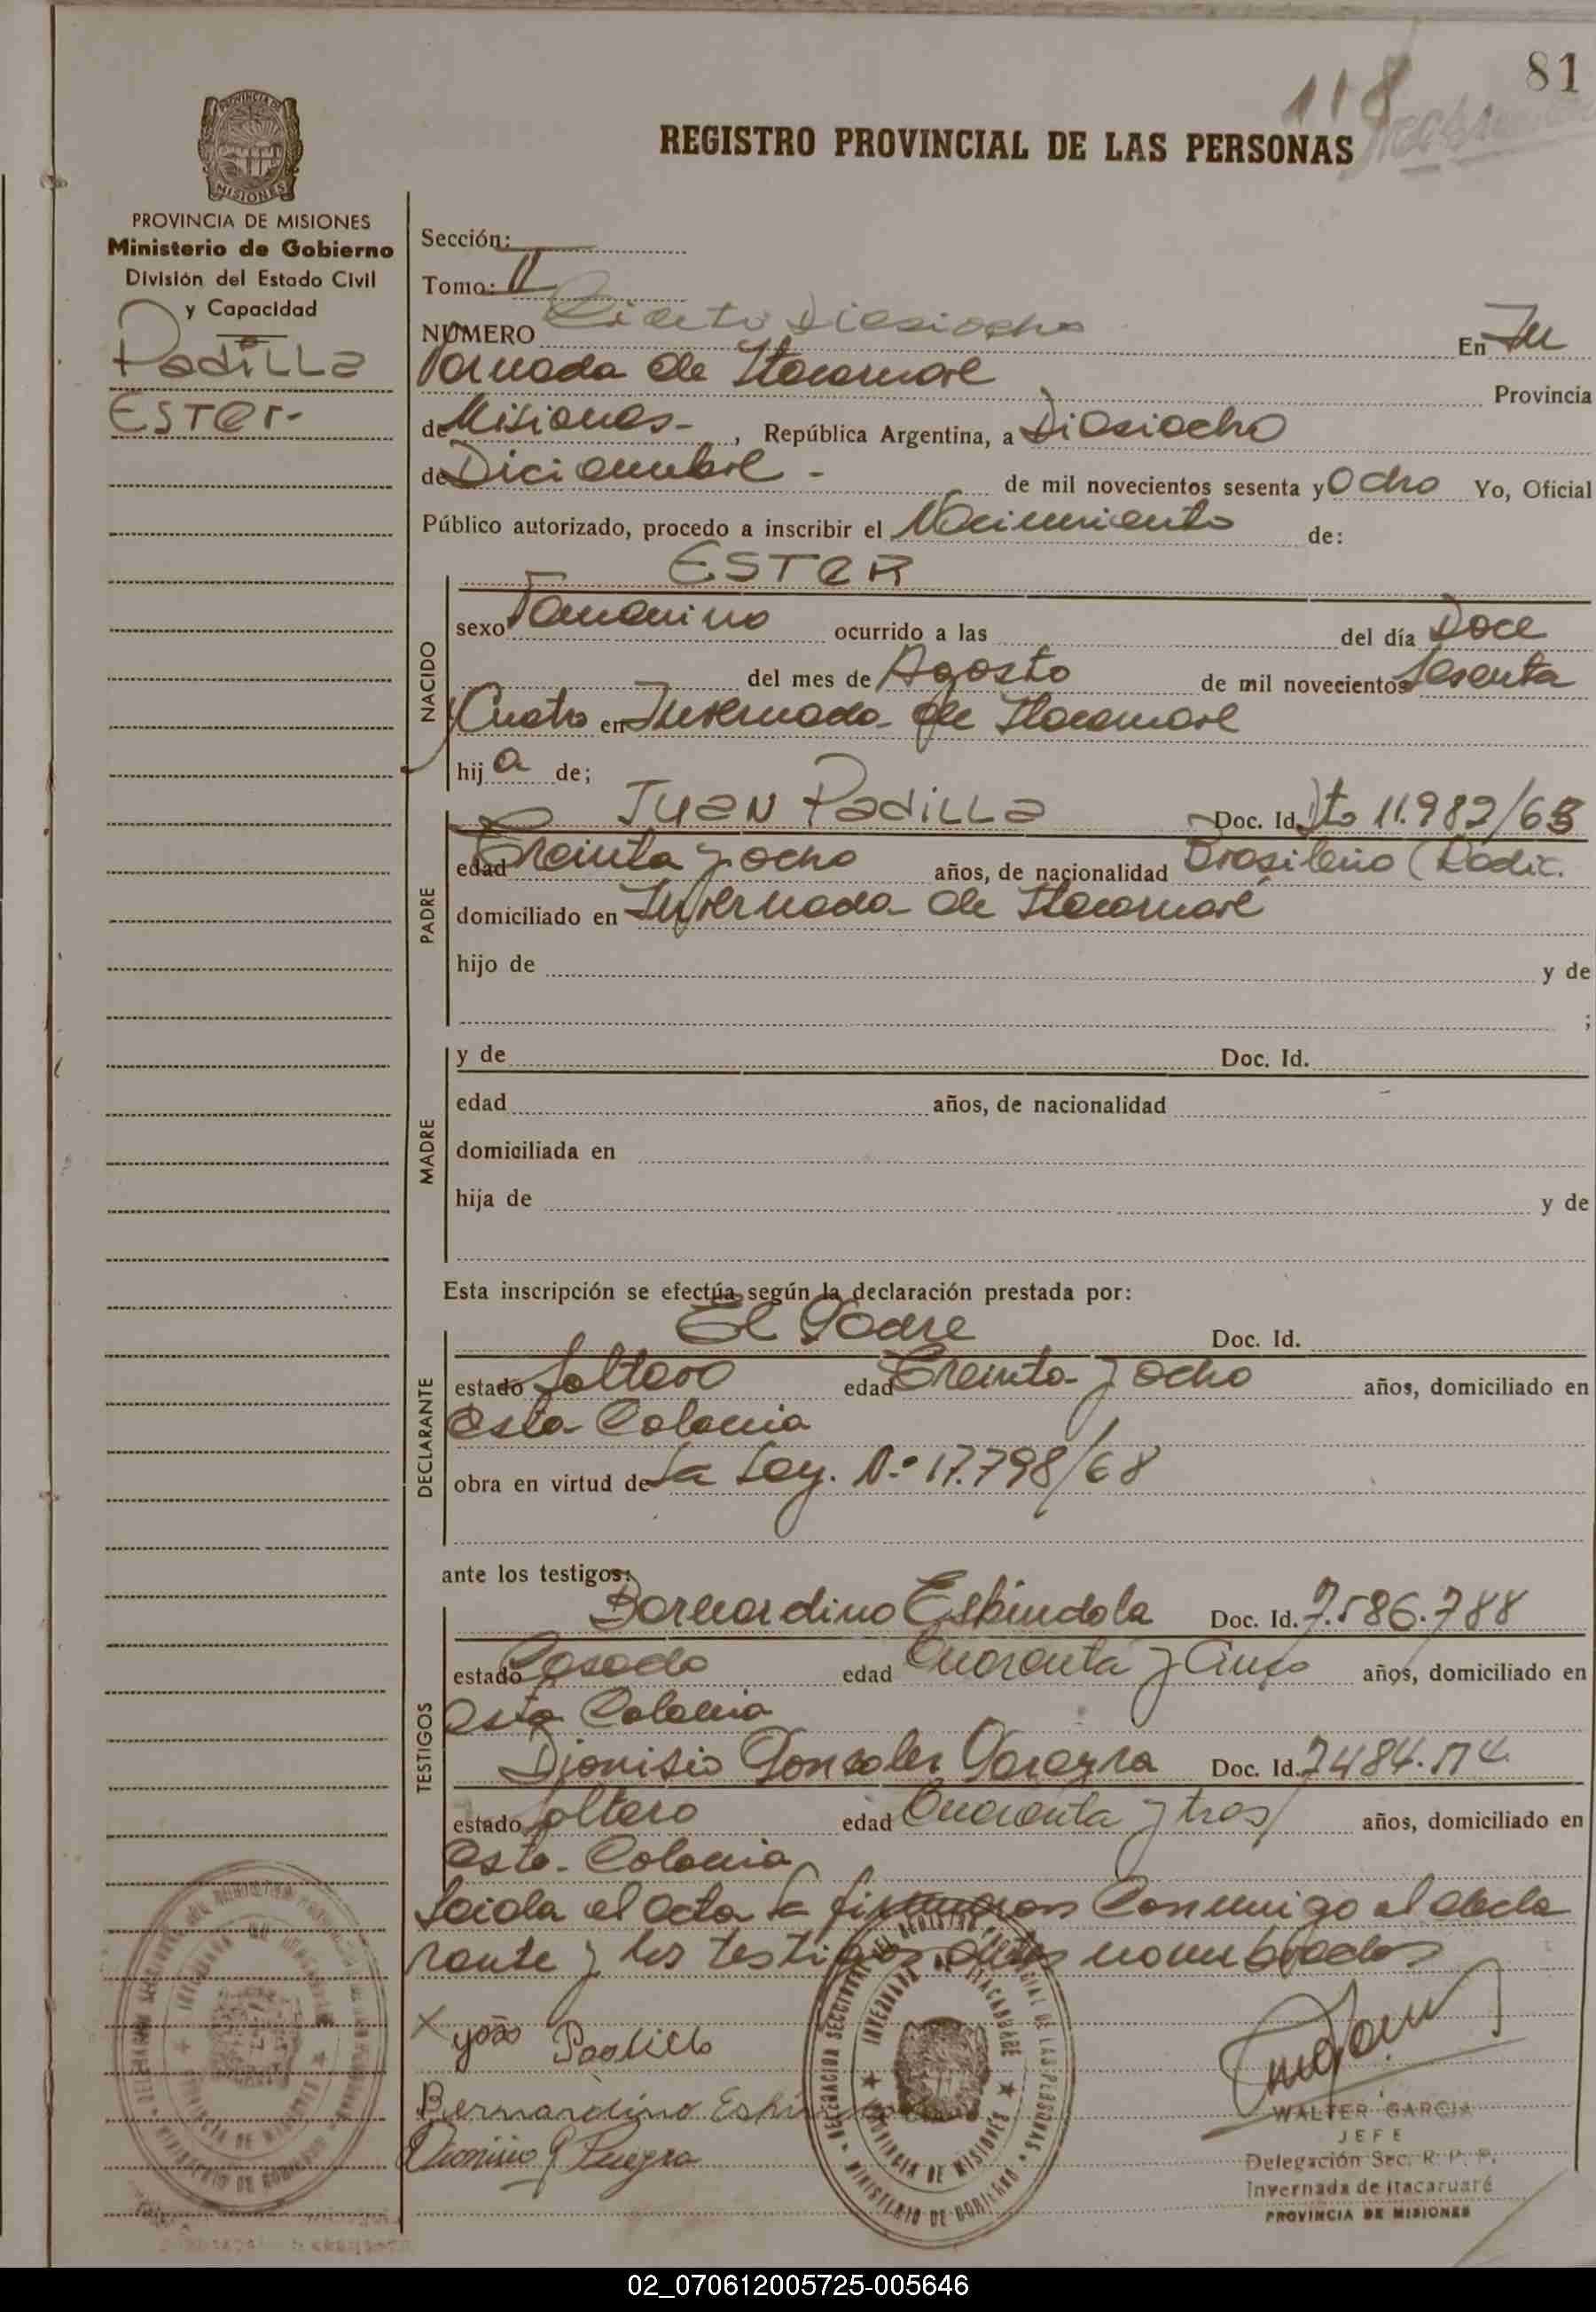 81
118
REGISTRO PROVINCIAL DE LAS PERSONAS
PROVINCIA DE MISIONES
Ministerio de Gobierno
División del Estado Civil
y Capacidad
Padilla
Ester-
Sección:
Tomo: II
NÚMERO Ciento Diesiocho En In
vernada de Itacaruare Provincia
de Misiones- , República Argentina, a Diesiocho
de Diciembre - de mil novecientos sesenta y Ocho Yo, Oficial
Público autorizado, procedo a inscribir el Nacimiento de:
NACIDO
ESTER
sexo Femenino ocurrido a las del día Doce
del mes de Agosto de mil novecientos Sesenta
y Cuatro en Invernada de Itacaruare
hij a de;
PADRE
Juan Padilla Doc. Id. Dto 11.982/65
edad Treinta y ocho años, de nacionalidad Brasileño (Radic.
domiciliado en Invernada de Itacaruaré
hijo de y de
;
MADRE
y de Doc. Id.
edad años, de nacionalidad
domiciliada en
hija de y de
Esta inscripción se efectúa según la declaración prestada por:
DECLARANTE
El Padre Doc. Id.
estado Soltero edad Treinta y ocho años, domiciliado en
esta Colonia
obra en virtud de La Ley. N.º 17.798/68
ante los testigos:
TESTIGOS
Bernardino Espindola Doc. Id. 7.586.788
estado Casado edad Cuarenta y Cinco años, domiciliado en
esta Colonia
Dionisio Gonzales Doc. Id. 7484.174
estado Soltero edad Cuarenta y tres años, domiciliado en
esta Colonia
Leida el acta la firmaron Conmigo el decla
rante y los testigos antes nombrados
x João Padilla
Bernardino Espindola
Dionisio G
DELEGACION SECCIONAL DEL REGISTRO PROVINCIAL DE LAS PERSONAS
INVERNADA DE ITACARUARE
PROVINCIA DE MISIONES
MINISTERIO DE GOBIERNO
WALTER GARCIA
JEFE
Delegación Sec. R. P. P.
Invernada de Itacaruaré
PROVINCIA DE MISIONES
02_070612005725-005646